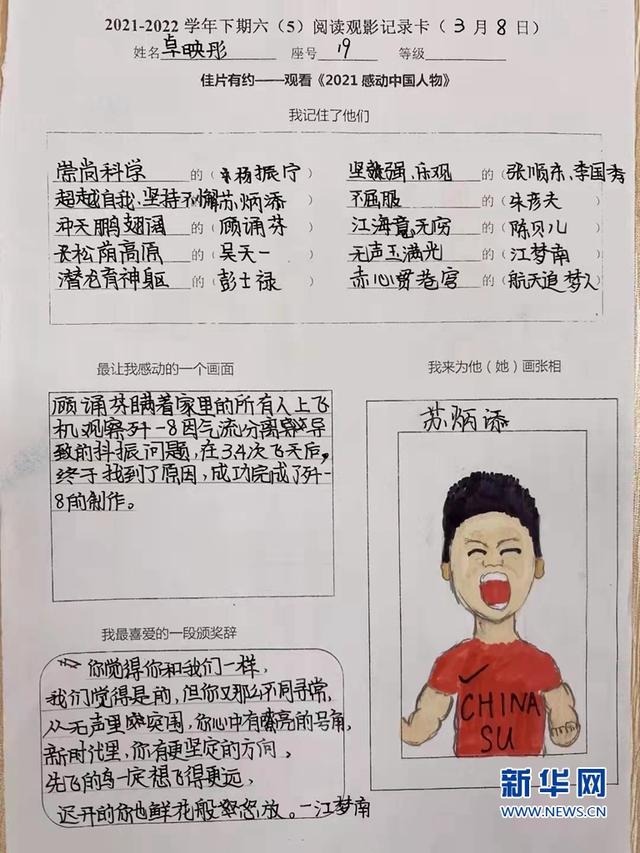 2021-2022 学年下期六（5）阅读观影记录卡（3月8日）
姓名 卓映彤 座号 19 等级
佳片有约——观看《2021 感动中国人物》
我记住了他们
崇尚科学 的（杨振宁） 坚强,乐观 的（张顺东,李国秀
超越自我,坚持不懈 苏炳添 不屈服 的（朱彦夫）
冲天鹏翅阔 的（顾诵芬） 江海竟无穷 的（陈贝儿）
长松荫高原 的（吴天一） 无声玉满光 的（江梦南）
潜龙育神躯 的（彭士禄） 赤心贯苍穹 的（航天追梦人
最让我感动的一个画面
我来为他（她）画张相
顾诵芬瞒着家里的所有人上飞
机观察歼-8因气流分离导
致的抖振问题，在3次飞天后，
终于找到了原因，成功完成了歼-
8的制作。
苏炳添
CHINA
SU
我最喜爱的一段颁奖辞
你觉得你和我们一样，
我们觉得是的，但你又那么不同寻常，
从无声里突围，你心中有嘹亮的号角，
新时代里，你有更坚定的方向。
先飞的鸟一定想飞得更远，
迟开的你也鲜花般怒放。—江梦南
新华网
WWW.NEWS.CN